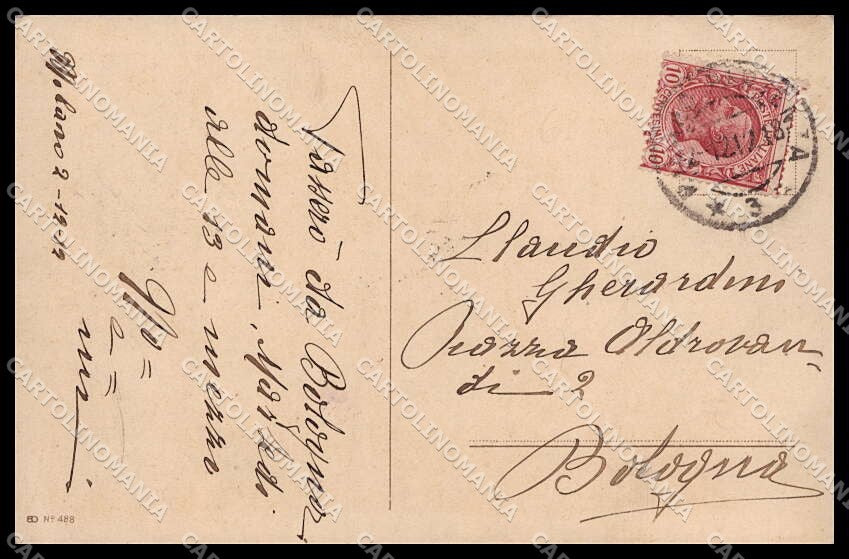 Milano 2-12-12
Passerò da Bologna
domani, Martedì
alle 13 e mezzo
Claudio
Gherardini
Piazza Aldrovan-
di 2
Bologna
10 CENTESIMI 10
Nº 488
CARTOLINOMANIA